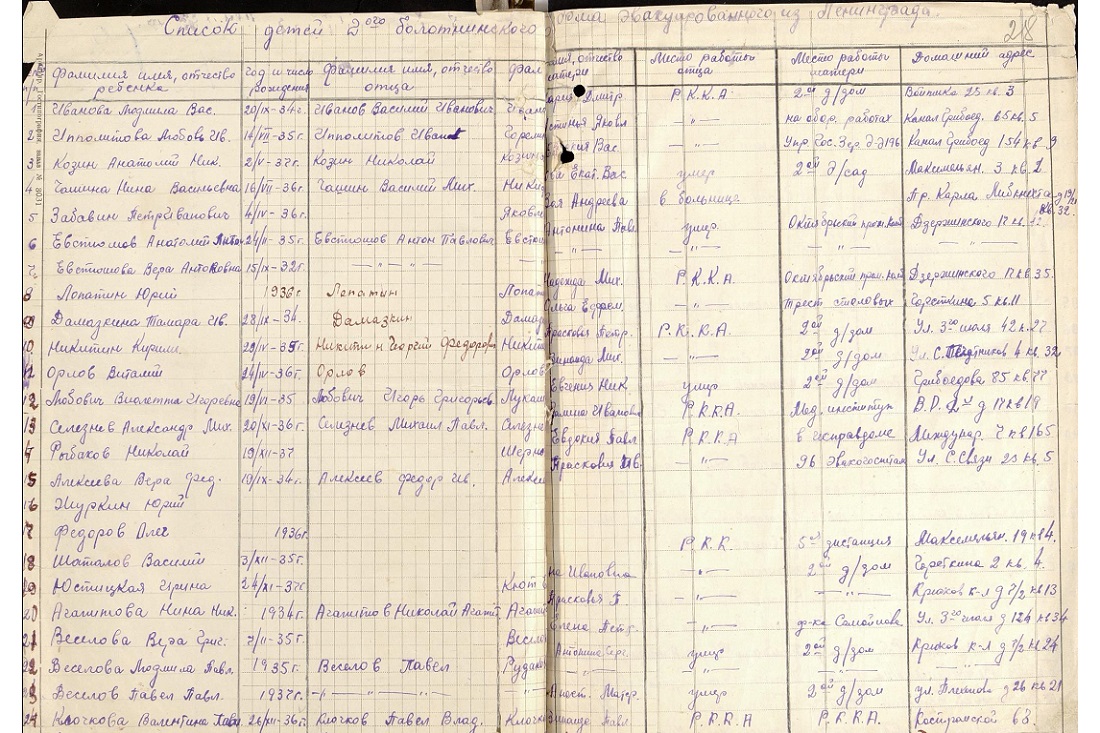 Список детей 2ого болотнинского дома эвакуированного из Ленинграда.
218
фамилия имя, отчество ребенка год и число рождения фамилия имя, отчество отца фам отчество матери Место работы отца Место работы матери Домашний адрес
Иванова Людмила Вас. 20/IX-34г. Иванов Василий Иванович Дмитр Р.К.К.А 2ой д/дом кв. 3
2 Ипполитова Любовь Ив. 16/VII-35г. Ипполитов Иван Яковл —„— на обор. работах Канал Грибоед. 65 кв. 5
3 Козин Анатолий Ник. 2/V-37г. Козин Николай Вас. —„— Канал Грибоед 154 кв. 9
4 Чашина Нина Васильевна 16/VII-36г. Чашин Василий Мих. Никит Екат. Вас умер 2ой д/сад Максимельян. 3 кв. 2
5 Забавин Петр Иванович 4/IV-36г. Яковл Зоя Андреева в больнице Пр. Карла Либкнехта
6 Евстюшов Анатолий Антон 24/II-35г. Евстюшов Антон Павлович Евстю Антонина Павл умер. Октябрьская пром. комб Дзержинского 17 кв.
7 Евстюшова Вера Антоновна 15/IX-32г. —„—„— —„— —„— —„— —„—
8 Лопатин Юрий 1936г Лопатин Лопат Надежда Мих. Р.К.К.А Октябрьский пром. комб Дзержинского 17 кв 35.
9 Дамазкина Тамара Ив. 23/IX-34. Дамазкин Дамаз Ольга Ефрем. —„— Трест столовых Герсткина 5 кв. 11
10 Никитин Кирилл 29/IV-35г Никитин Георгий Федоров Никит Прасковя Петр. Р.К.К.А. 2ой д/дом Ул. 3го июля 42 к. 27
11 Орлов Виталий 24/IV-36г Орлов Орлов Зинаида Мих. —„— 2ой д/дом Ул. С. 4 кв. 32
12 Любович Виолетта Игоревна 19/VI-35 Любович Игорь Григорьев. Лукаш Евгения Ник умер 2ой д/дом Грибоедова 85 кв. 77
13 Селезнев Александр Мих. 20/XI-36г. Селезнев Михаил Павл. Селезне Ивановна Р.К.К.А. Мед. институт В.О. 2 д 17 кв 19
14 Рыбаков Николай 19/XII-37 Шерно Евдокия Павл Р.К.К.А в исправдоме Междунар. 7 кв 165
15 Алексеева Вера Фед. 19/IX-34г. Алексеев Федор Ив. Алексе Прасковия —„— 96 Эвакогоспиталь Ул. С. Связи 23 кв. 5
16 Журкин Юрий
17 Федоров Олег 1936г. Р.К.К. 5ая дистанция Максемельян. 19 кв 4.
18 Шаталов Василий 3/XII-35г. Ивановна —„— 2ой д/дом Герсткина 2 кв. 4.
19 Юстицкая Ирина 24/XI-37г Кют Прасковя Г. —„— Крюков к-л д 7/2 кв 13
20 Агапитова Нина Ник. 1934г. Агапитов Николай Агапит Агапи Елена Петр. —„— ф-ка Самойлова Ул. 3го июля д 124 кв 34
21 Веселова Вера Григ. 7/II-35г. Весело Антонина Серг. умер 2ой д/дом Крюков к-л д 7/2 кв 24
22 Веселова Людмила Павл. 1935г. Веселов Павел Рудак —„— —„— —„—
23 Веселов Павел Павл. 1937г. —„—„— Анаст. Матв. умер 2ой д/дом ул. Плеханова д 26 кв 21
24 Клочкова Валентина Павл 26/XII-36г. Клочков Павел Влад. Клочк Зинаида Павл Р.К.К.А Р.К.К.А. Костромской 68.